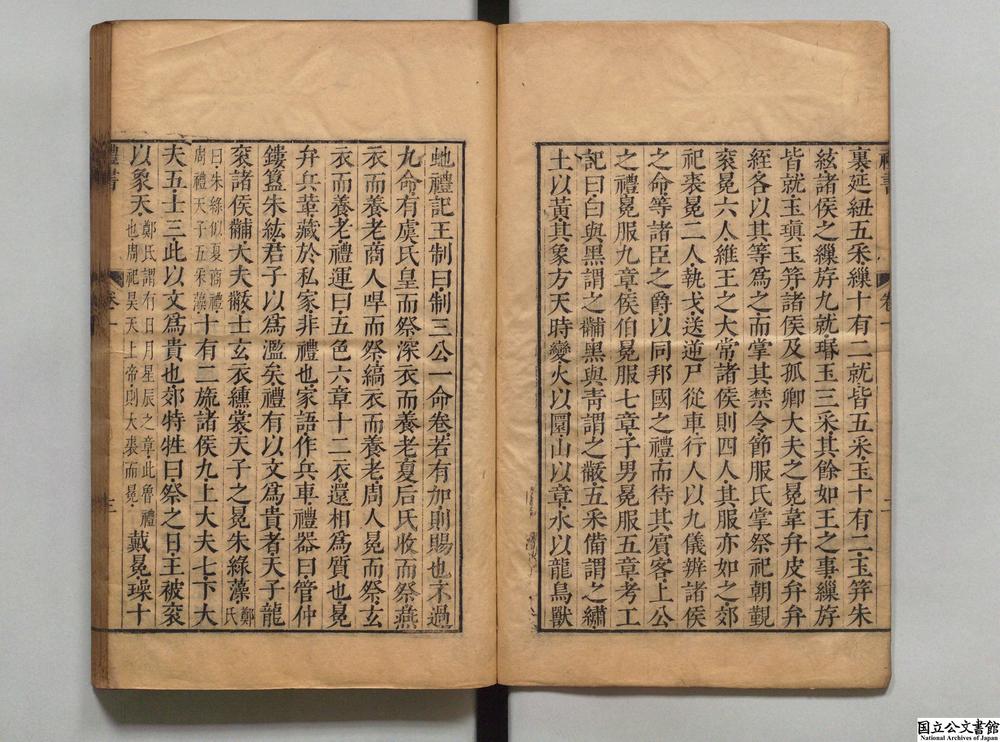 裏延紐五采繅十有二就皆五采玉十有二玉筓朱
紘諸侯之繅斿九就瑉玉三采其餘如王之事繅斿
皆就玉瑱玉筓諸侯及孤卿大夫之冕韋弁皮弁弁
絰各以其等為之而掌其禁令節服氏掌祭祀朝覲
袞冕六人維王之大常諸侯則四人其服亦如之郊
祀裘冕二人執戈送逆尸從車行人以九儀辨諸侯
之命等諸臣之爵以同邦國之禮而待其賓客上公
之禮冕服九章侯伯冕服七章子男冕服五章考工
記曰白與黑謂之黼黑與青謂之黻五采備謂之繡
土以黃其象方天時變火以圜山以章水以龍鳥獸
虵禮記王制曰制三公一命卷若有加則賜也不過
九命有虞氏皇而祭深衣而養老夏后氏收而祭燕
衣而養老商人冔而祭縞衣而養老周人冕而祭玄
衣而養老禮運曰五色六章十二衣還相為質也冕
弁兵革藏於私家非禮也家語作兵車禮器曰管仲
鏤簋朱紘君子以為濫矣禮有以文為貴者天子龍
袞諸侯黼大夫黻士玄衣纁裳天子之冕朱綠藻鄭氏
曰朱綠似夏商禮周禮天子五采藻十有二旒諸侯九上大夫七下大
夫五士三此以文為貴也郊特牲曰祭之日王被袞
以象天鄭氏謂有日月星辰之章此魯禮也周祀昊天上帝則大裘而冕戴冕璪十
禮書
卷一
國立公文書館
National Archives of Japan